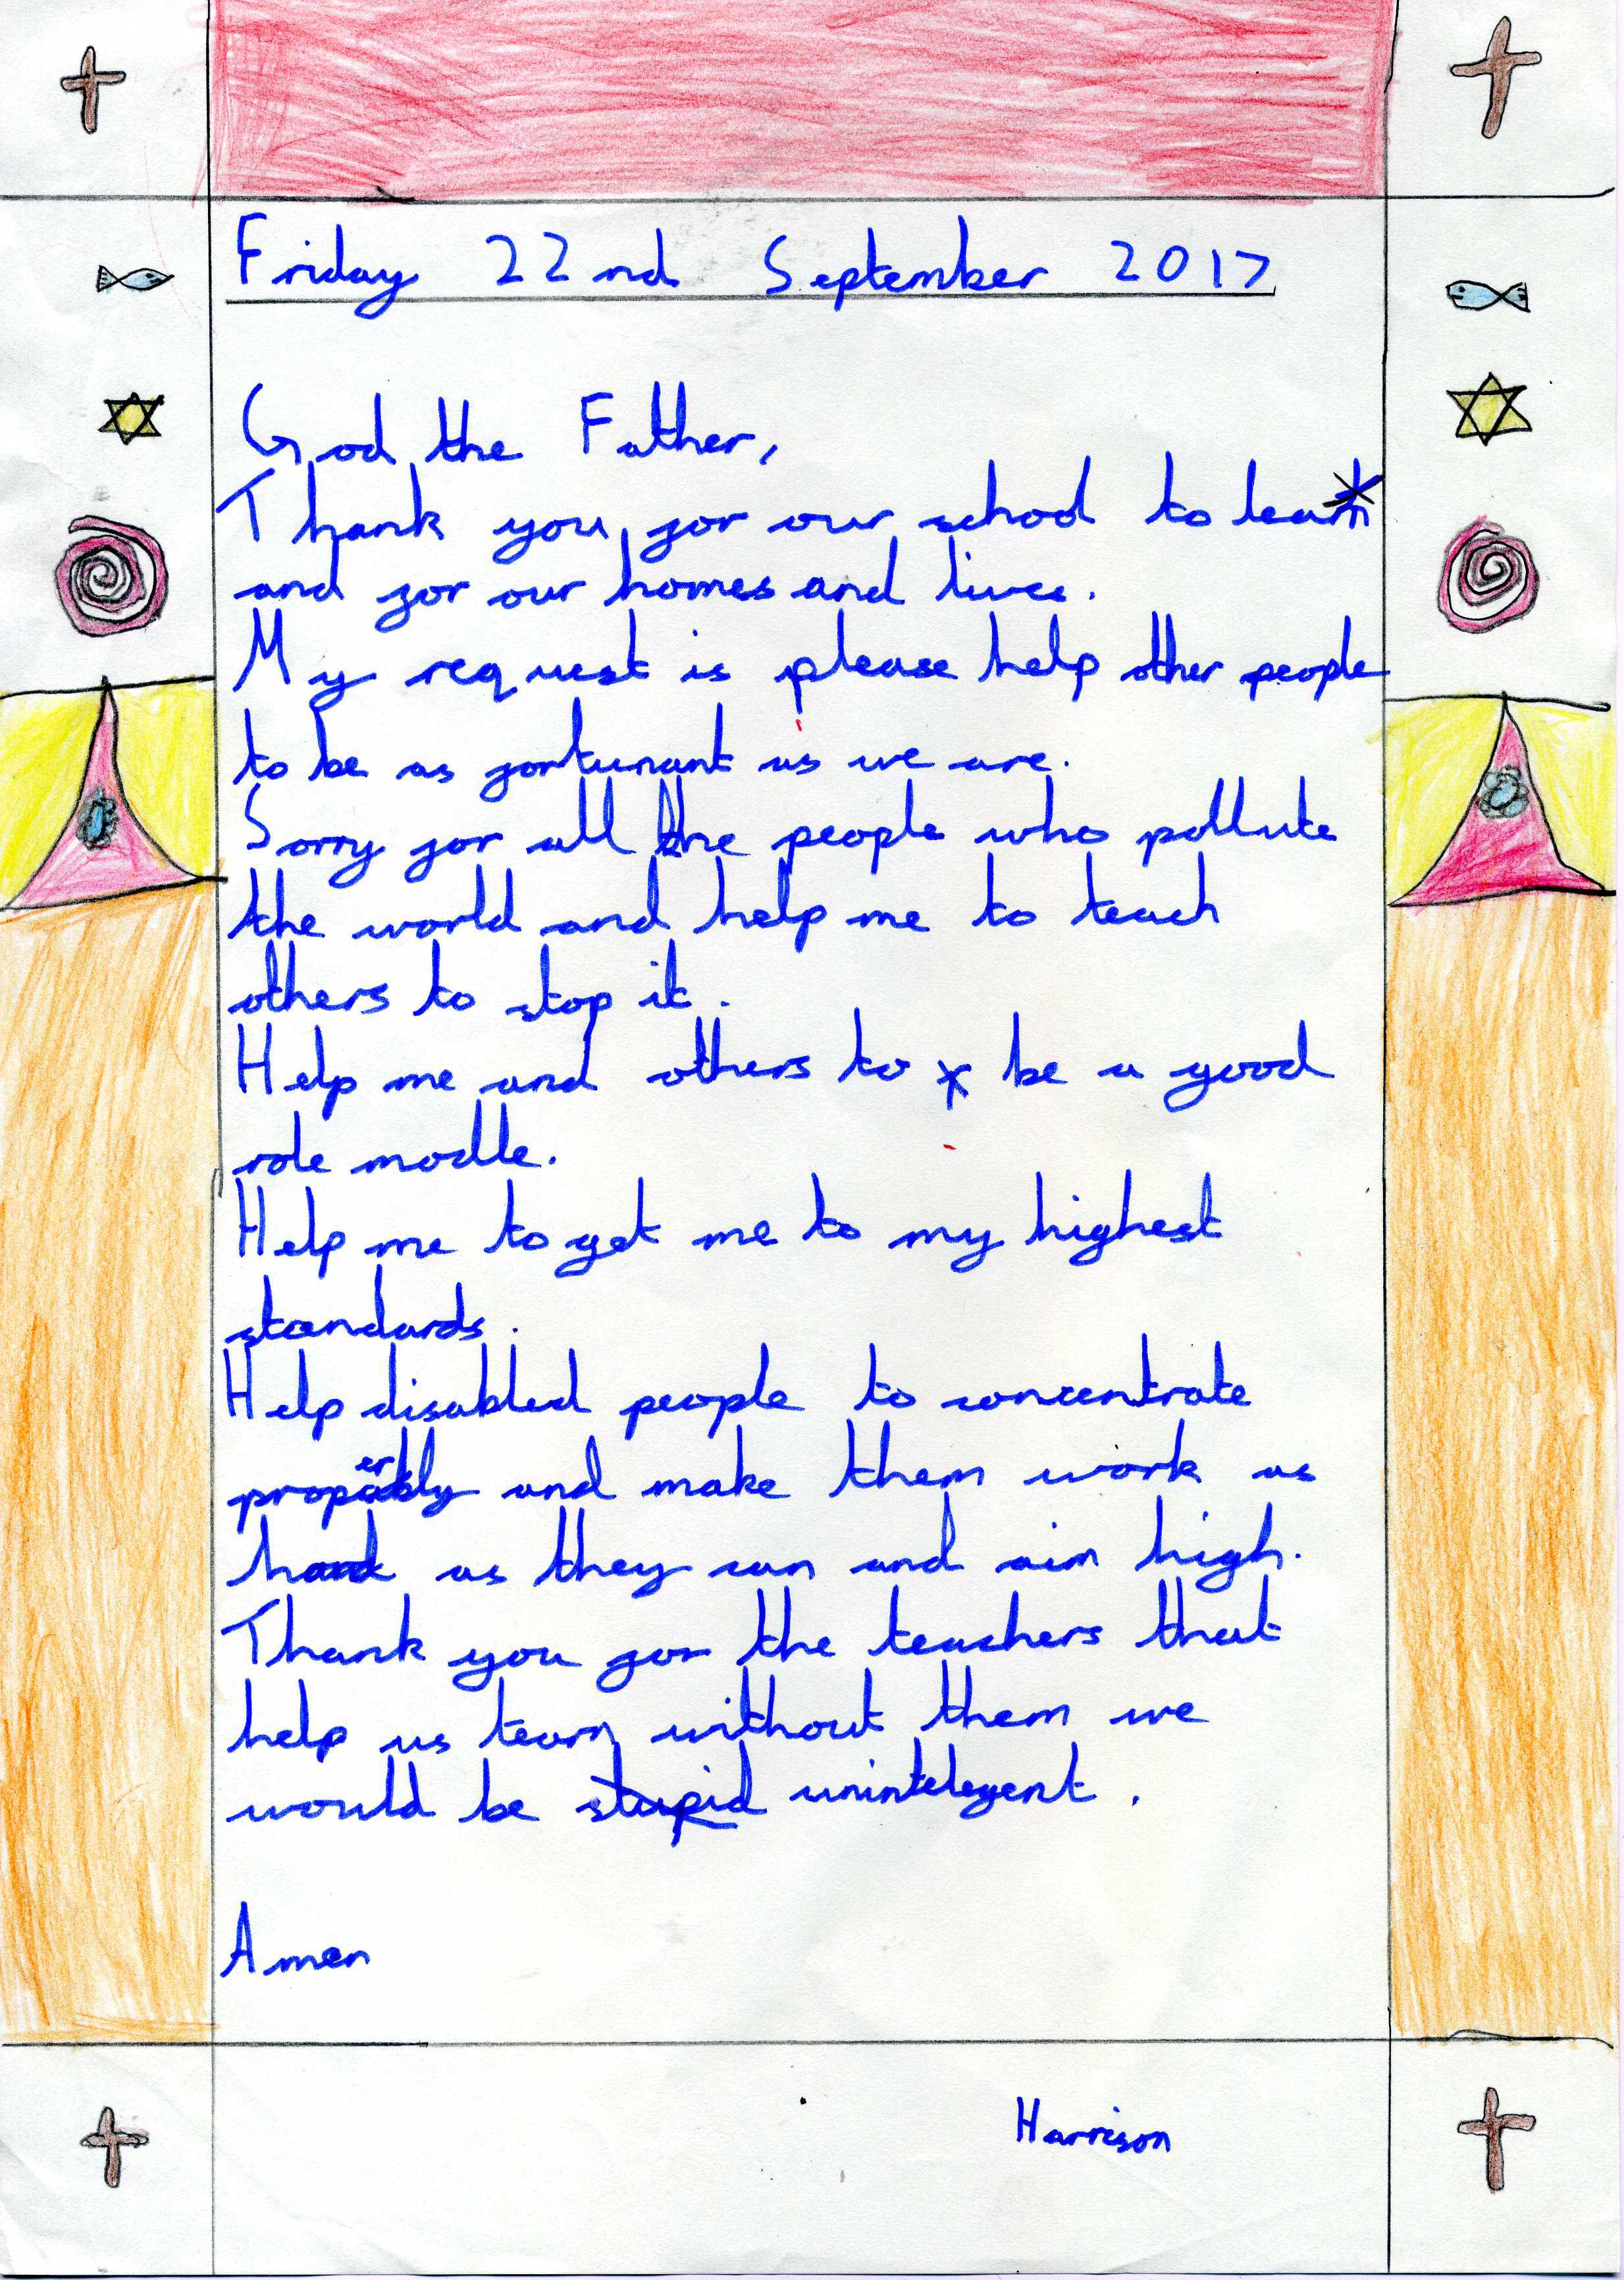 Friday 22nd September 2017
God the Father,
Thank you for our school to learn*
and for our homes and lives.
My request is please help other people
to be as fortunant as we are.
Sorry for all the people who pollute
the world and help me to teach
others to stop it.
Help me and others to be a good
role modle.
Help me to get me to my highest
standards.
Help disabled people to concentrate
properly and make them work as
hard as they can and aim high.
Thank you for the teachers that
help us learn without them we
would be stupid unintelegent.
Amen
Harrison